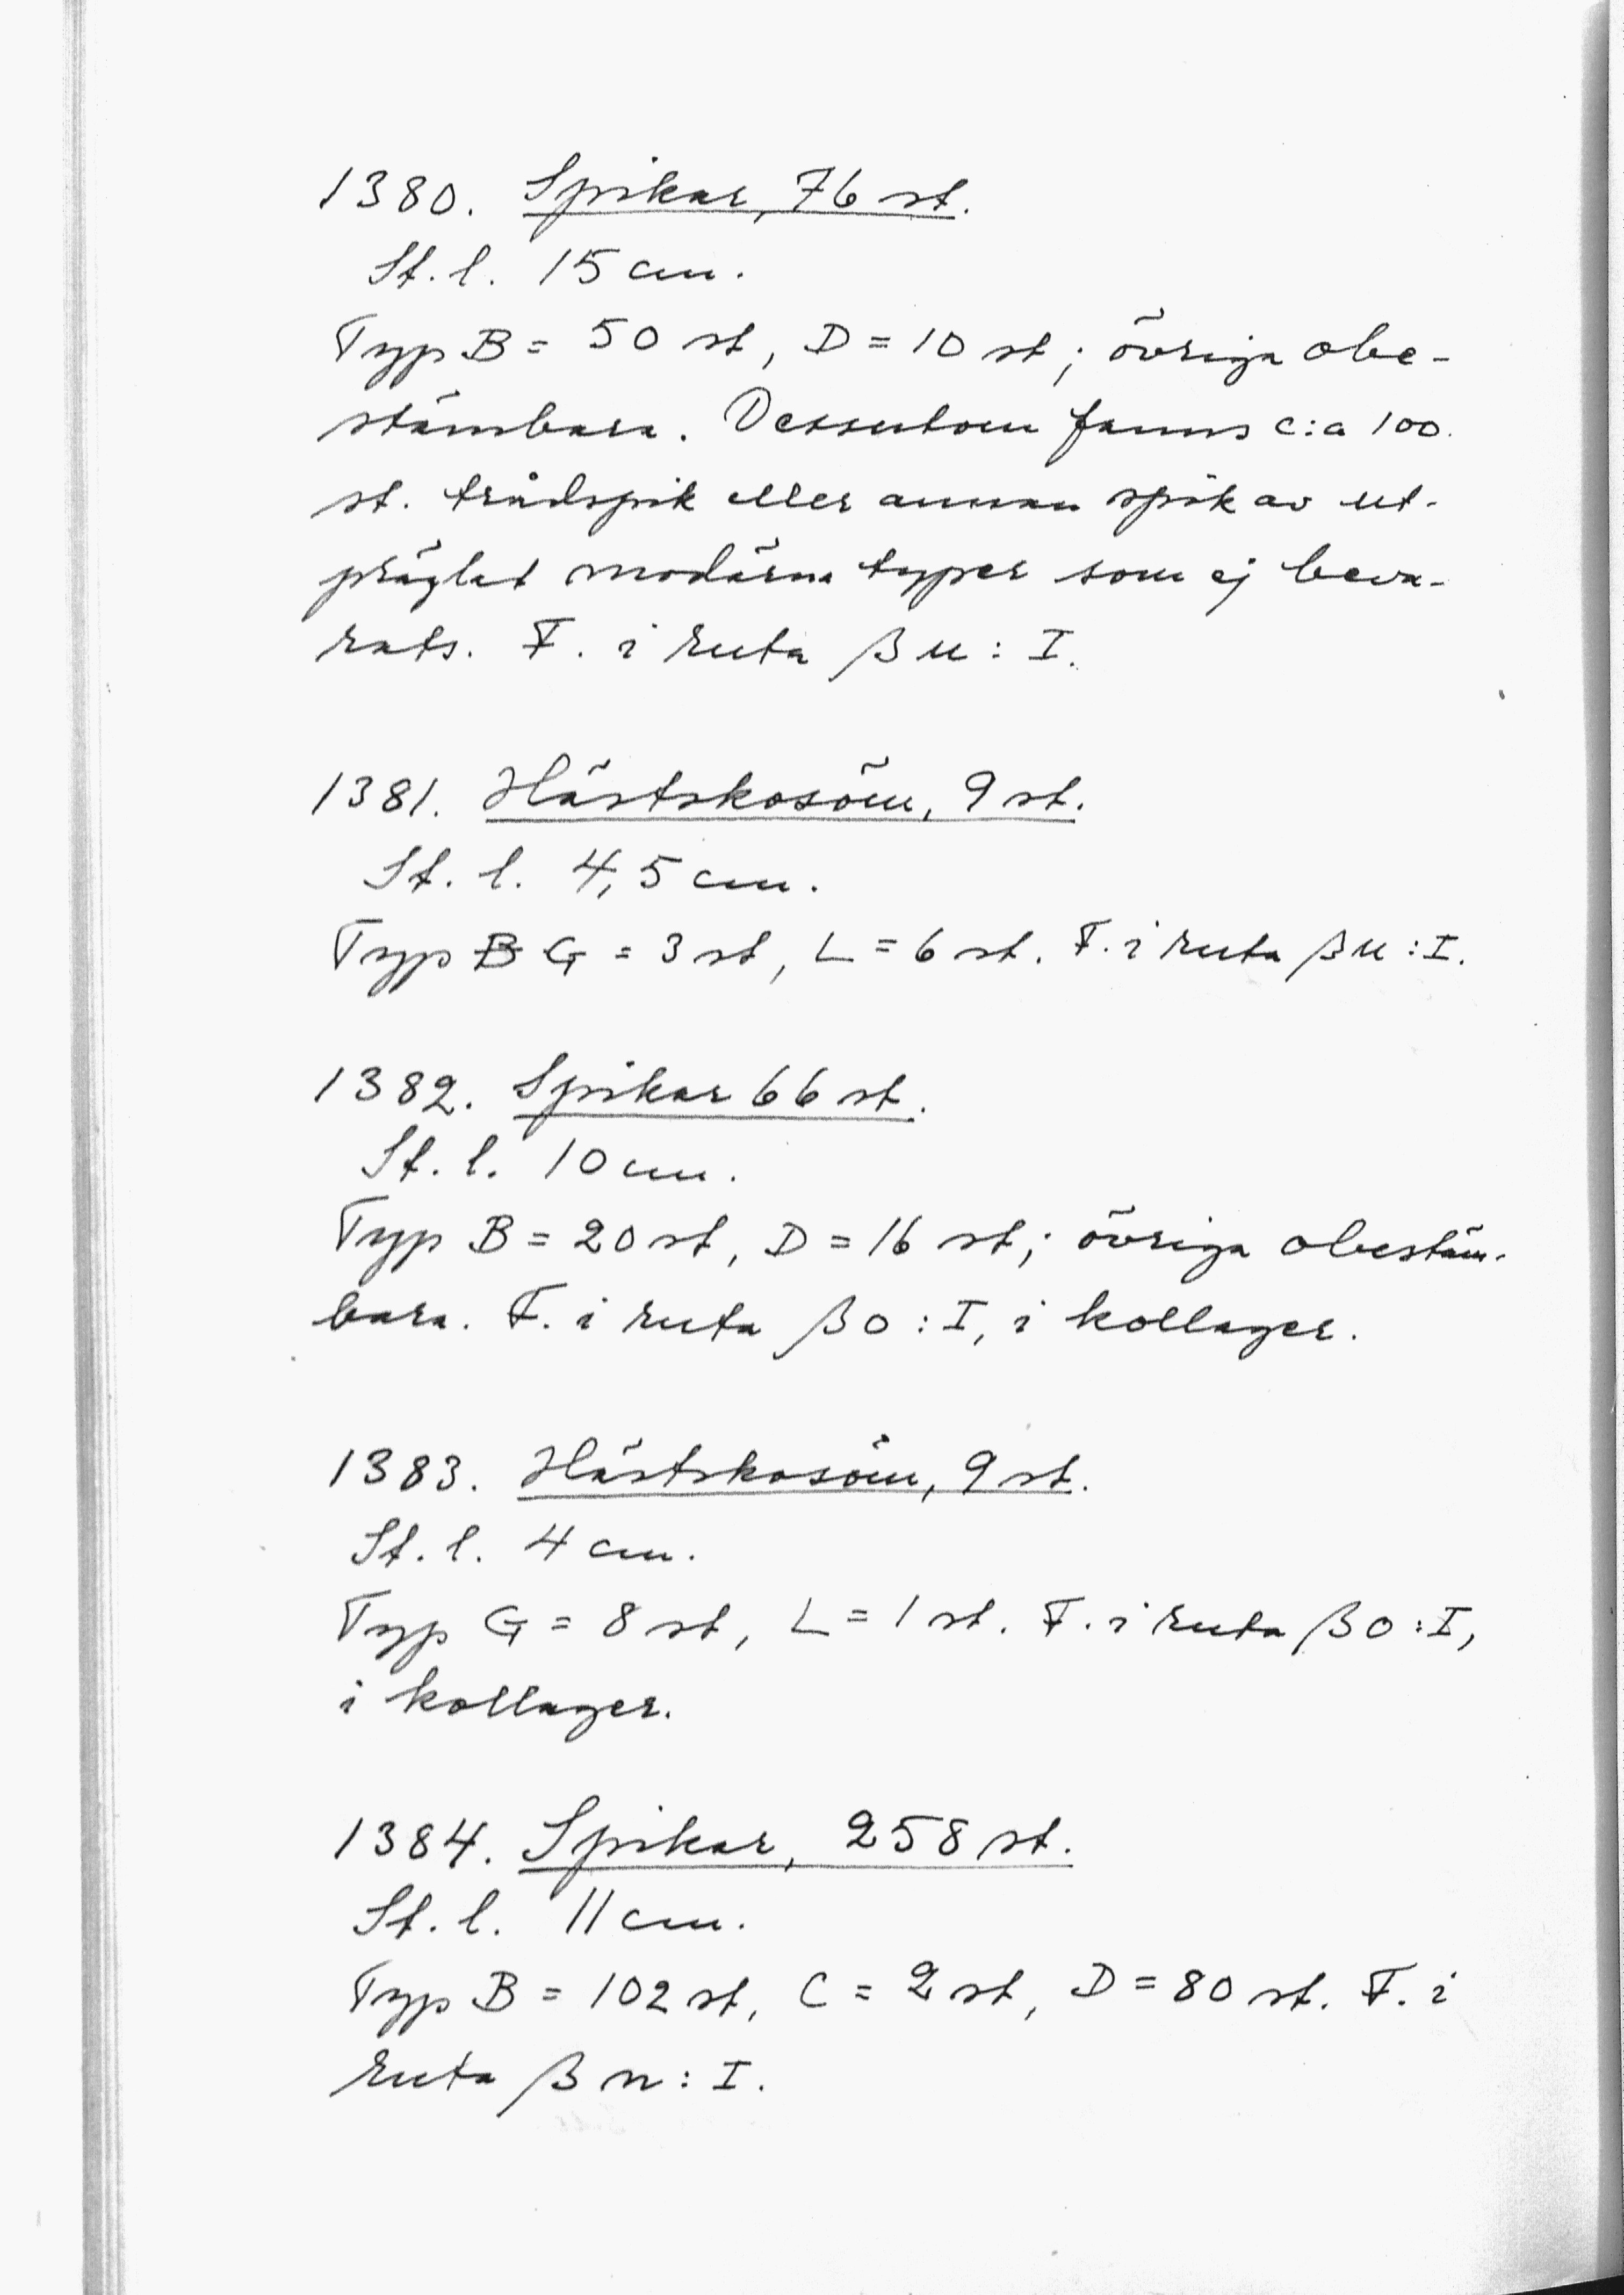 1380. Spikar, 76 st.
St. l. 15 cm.
Typ B = 50 st, D = 10 st; övriga obe-
stämbara. Dessutom fanns c:a 100
st. trådspik eller annan spik av ut-
präglat modärna typer som ej beva-
rats. F. i ruta βu : I.
1381. Hästskosöm, 9 st.
St. l. 4,5 cm.
Typ B G = 3 st, L = 6 st. F. i ruta βu : I.
1382. Spikar 66 st.
St. l. 10 cm.
Typ B = 20 st, D = 16 st; övriga obestäm-
bara. F. i ruta βo : I, i kollager.
1383. Hästskosöm, 9 st.
St. l. 4 cm.
Typ G = 8 st, L = 1 st. F. i ruta βo : I,
i kollager.
1384. Spikar, 258 st.
St. l. 11 cm.
Typ B = 102 st, C = 2 st, D = 80 st. F. i
ruta βn : I.